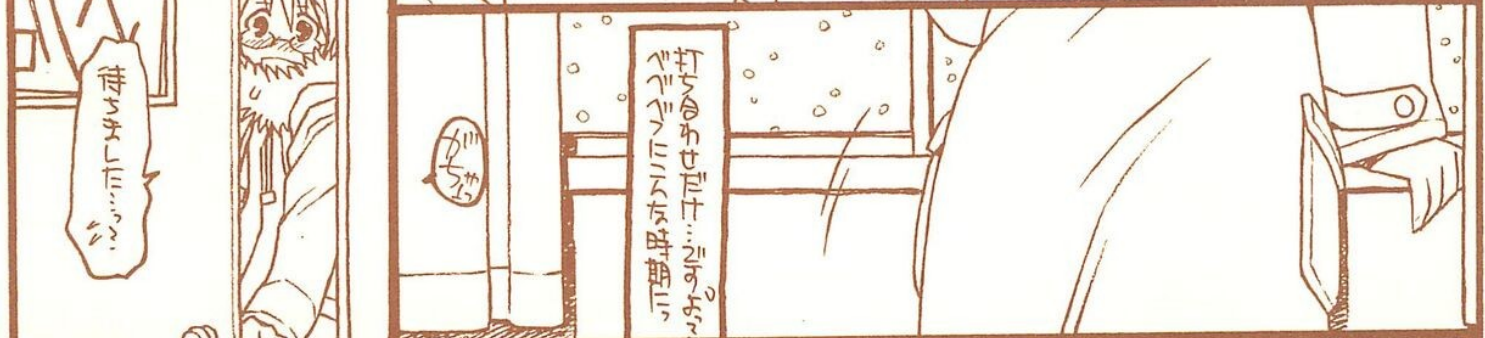 打ち合わせだけ…ですよっ
べべべつにこんな時期にっ
がちゃっ
待ちました…っ?